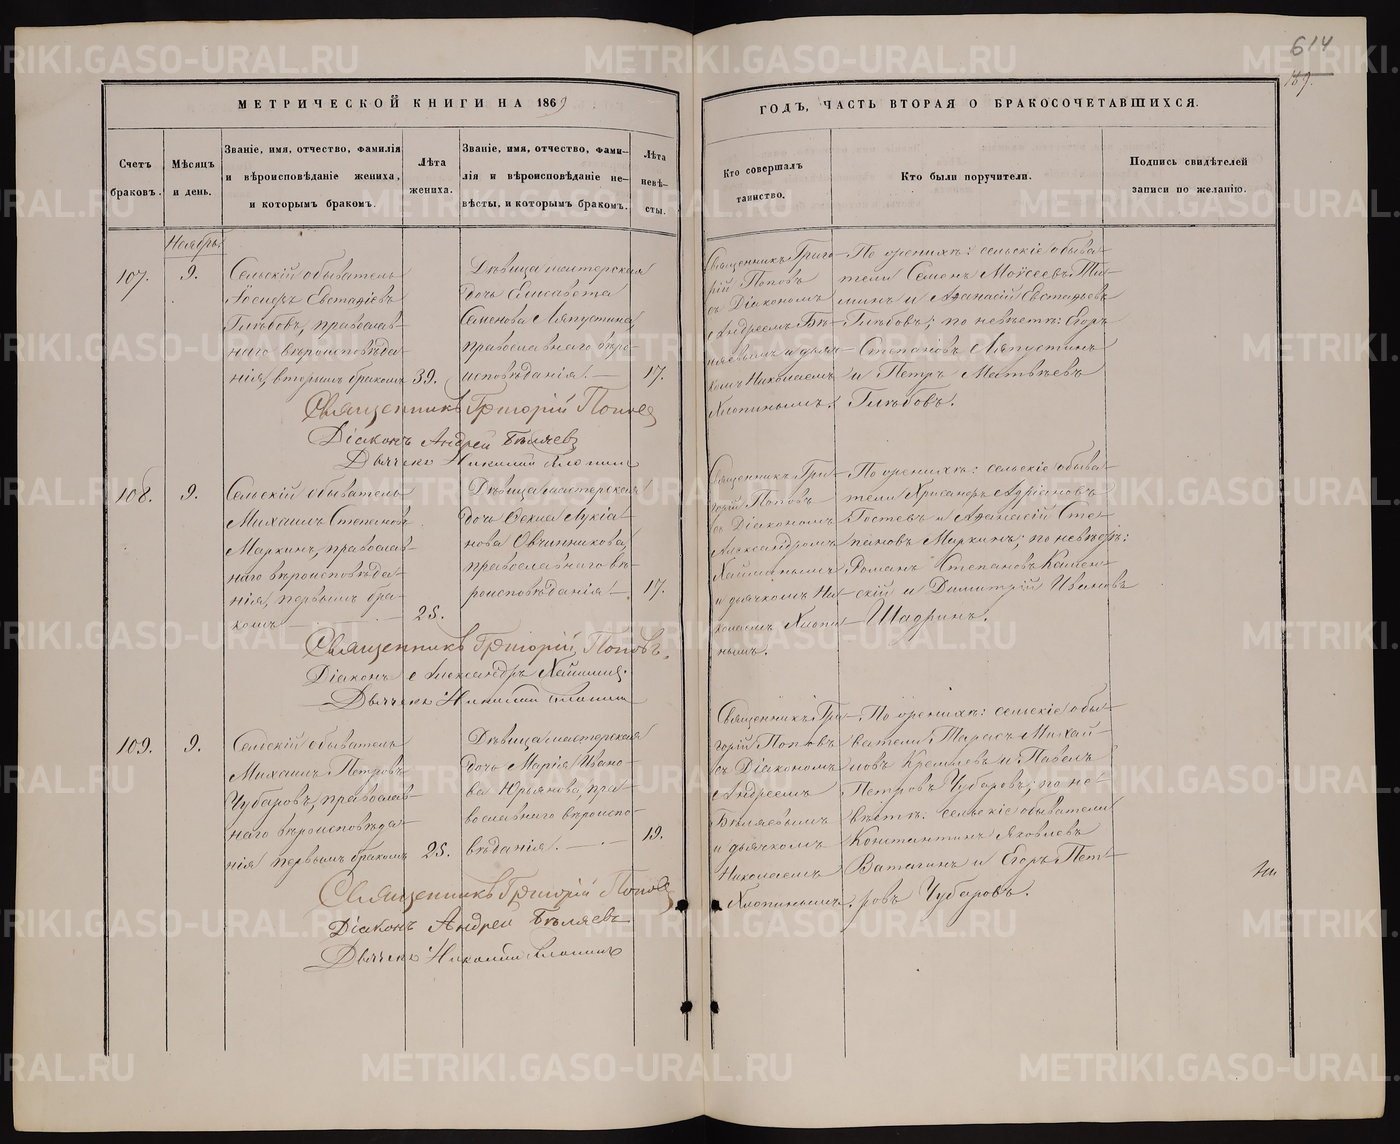 614
189.
МЕТРИЧЕСКОЙ КНИГИ НА 1869
ГОДЪ, ЧАСТЬ ВТОРАЯ О БРАКОСОЧЕТАВШИХСЯ.
Счетъ
браковъ.
Мѣсяцъ
и день.
Званіе, имя, отчество, фамилія
и вѣроисповѣданіе жениха,
и которымъ бракомъ.
Лѣта
жениха.
Званіе, имя, отчество, фами-
лія и вѣроисповѣданіе не-
вѣсты, и которымъ бракомъ.
Лѣта
невѣ-
сты.
Кто совершалъ
таинство.
Кто были поручители.
Подпись свидѣтелей
записи по желанію.
Ноябрь
107.
9.
Сельскій обыватель
Іосифъ Евстафіевъ
Глѣбовъ, православ-
наго вѣроисповѣда-
нія, вторымъ бракомъ
39.
Дѣвица мастерская
дочь Елисавета
Семенова Ляпустина,
православнаго вѣро-
исповѣданія.
17.
Священникъ Григо-
рій Поповъ
съ Діакономъ
Андреемъ Бѣ-
ляевымъ и дьяч-
комъ Николаемъ
Хлопинымъ.
По женихѣ: сельскіе обыва-
тели Семенъ Моѵсеевъ
и Аѳанасій Евстафьевъ
Глѣбовъ; по невѣстѣ: Егоръ
Степановъ Ляпустинъ
и Петръ Матвѣевъ
Глѣбовъ.
Священникъ Григорій Поповъ
Діаконъ Андрей Бѣляевъ
Дьячекъ Николай Хлопинъ
108.
9.
Сельскій обыватель
Михаилъ Степановъ
Маркинъ, православ-
наго вѣроисповѣда-
нія, первымъ бра-
комъ
25.
Дѣвица мастерская
дочь Ѳекла Лукіа-
нова Овчинникова,
православнаго вѣ-
роисповѣданія.
17.
Священникъ Гри-
горій Поповъ
съ Діакономъ
Александромъ
и дьячкомъ Ни-
колаемъ Хлопи-
нымъ.
По женихѣ: сельскіе обыва-
тели Хрисанфъ Адріановъ
Гостевъ и Аѳанасій Сте-
пановъ Маркинъ; по невѣстѣ:
Романъ Степановъ Камен-
скій и Димитрій Ивановъ
Шадринъ.
Священникъ Григорій Поповъ.
Діаконъ Александръ
Дьячекъ Николай Хлопинъ
109.
9.
Сельскій обыватель
Михаилъ Петровъ
Чубаровъ, православ-
наго вѣроисповѣда-
нія первымъ бракомъ
25.
Дѣвица мастерская
дочь Марія Ивано-
ва Юрьянова, пра-
вославнаго вѣроиспо-
вѣданія.
19.
Священникъ Гри-
горій Поповъ
съ Діакономъ
Андреемъ
Бѣляевымъ
и дьячкомъ
Николаемъ
Хлопинымъ.
По женихѣ: сельскіе обы-
ватели Тарасъ Михай-
ловъ Кремлевъ и Павелъ
Петровъ Чубаровъ; по не-
вѣстѣ: сельскіе обыватели
Константинъ Яковлевъ
Ватагинъ и Егоръ Пет-
ровъ Чубаровъ.
Священникъ Григорій Поповъ
Діаконъ Андрей Бѣляевъ
Дьячекъ Николай Хлопинъ
METRIKI.GASO-URAL.RU